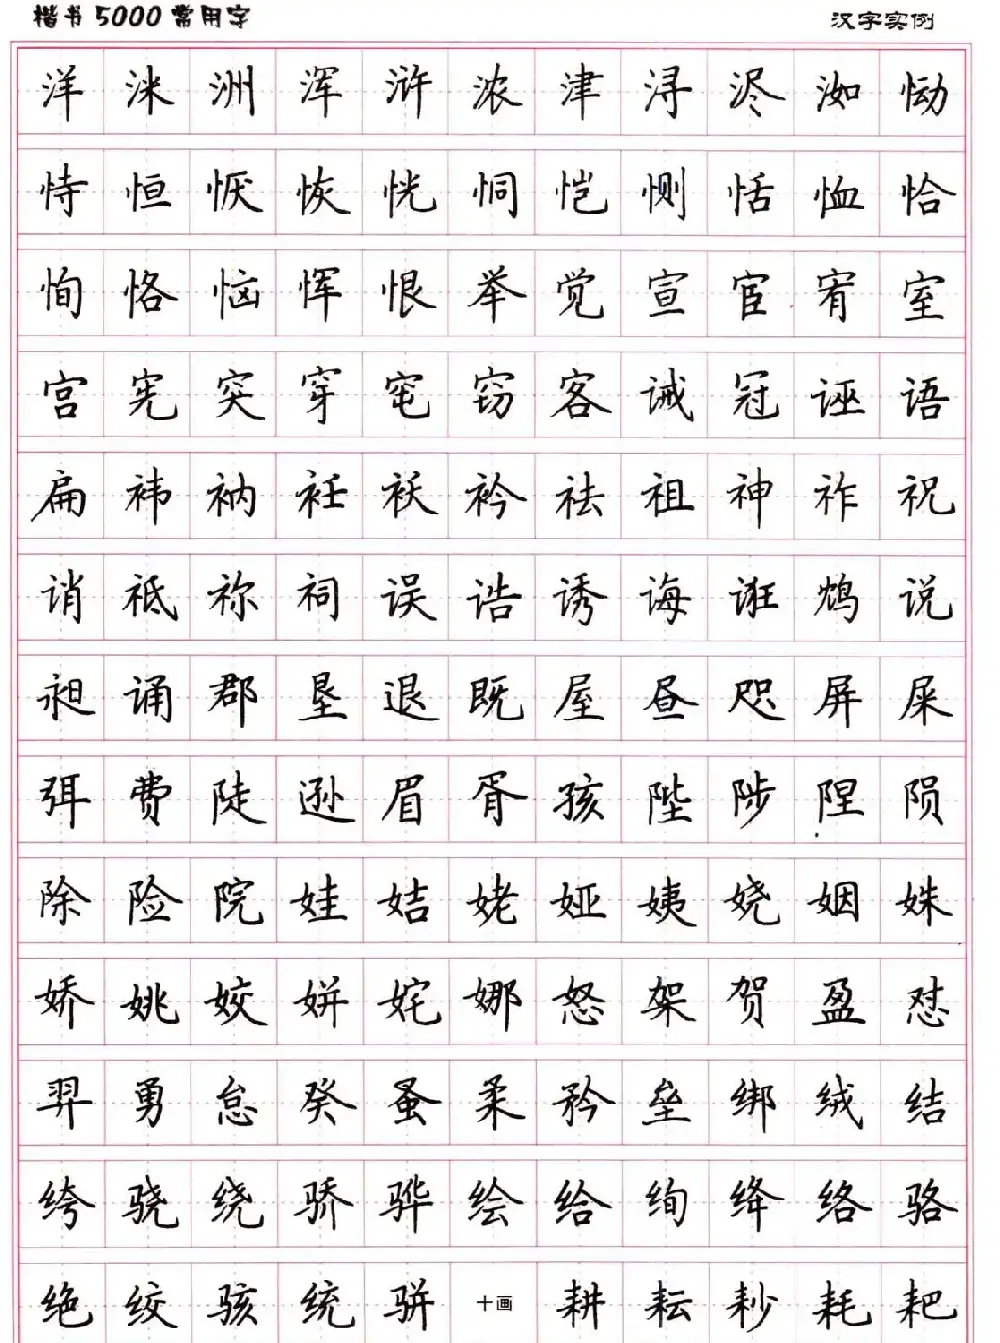 楷书5000常用字 汉字实例
洋 洣 洲 浑 浒 浓 津 浔 浕 洳 恸
恃 恒 恹 恢 恍 恫 恺 恻 恬 恤 恰
恂 恪 恼 恽 恨 举 觉 宣 宦 宥 室
宫 宪 突 穿 窀 窃 客 诫 冠 诬 语
扁 袆 衲 衽 袄 衿 祛 祖 神 祚 祝
诮 祗 祢 祠 误 诰 诱 诲 诳 鸩 说
昶 诵 郡 垦 退 既 屋 昼 咫 屏 屎
弭 费 陡 逊 眉 胥 孩 陛 陟 陧 陨
除 险 院 娃 姞 姥 娅 姨 娆 姻 姝
娇 姚 姣 姘 姹 娜 怒 架 贺 盈 怼
羿 勇 怠 癸 蚤 柔 矜 垒 绑 绒 结
绔 骁 绕 骄 骅 绘 给 绚 绛 络 骆
绝 绞 骇 统 骈 十画 耕 耘 耖 耗 耙